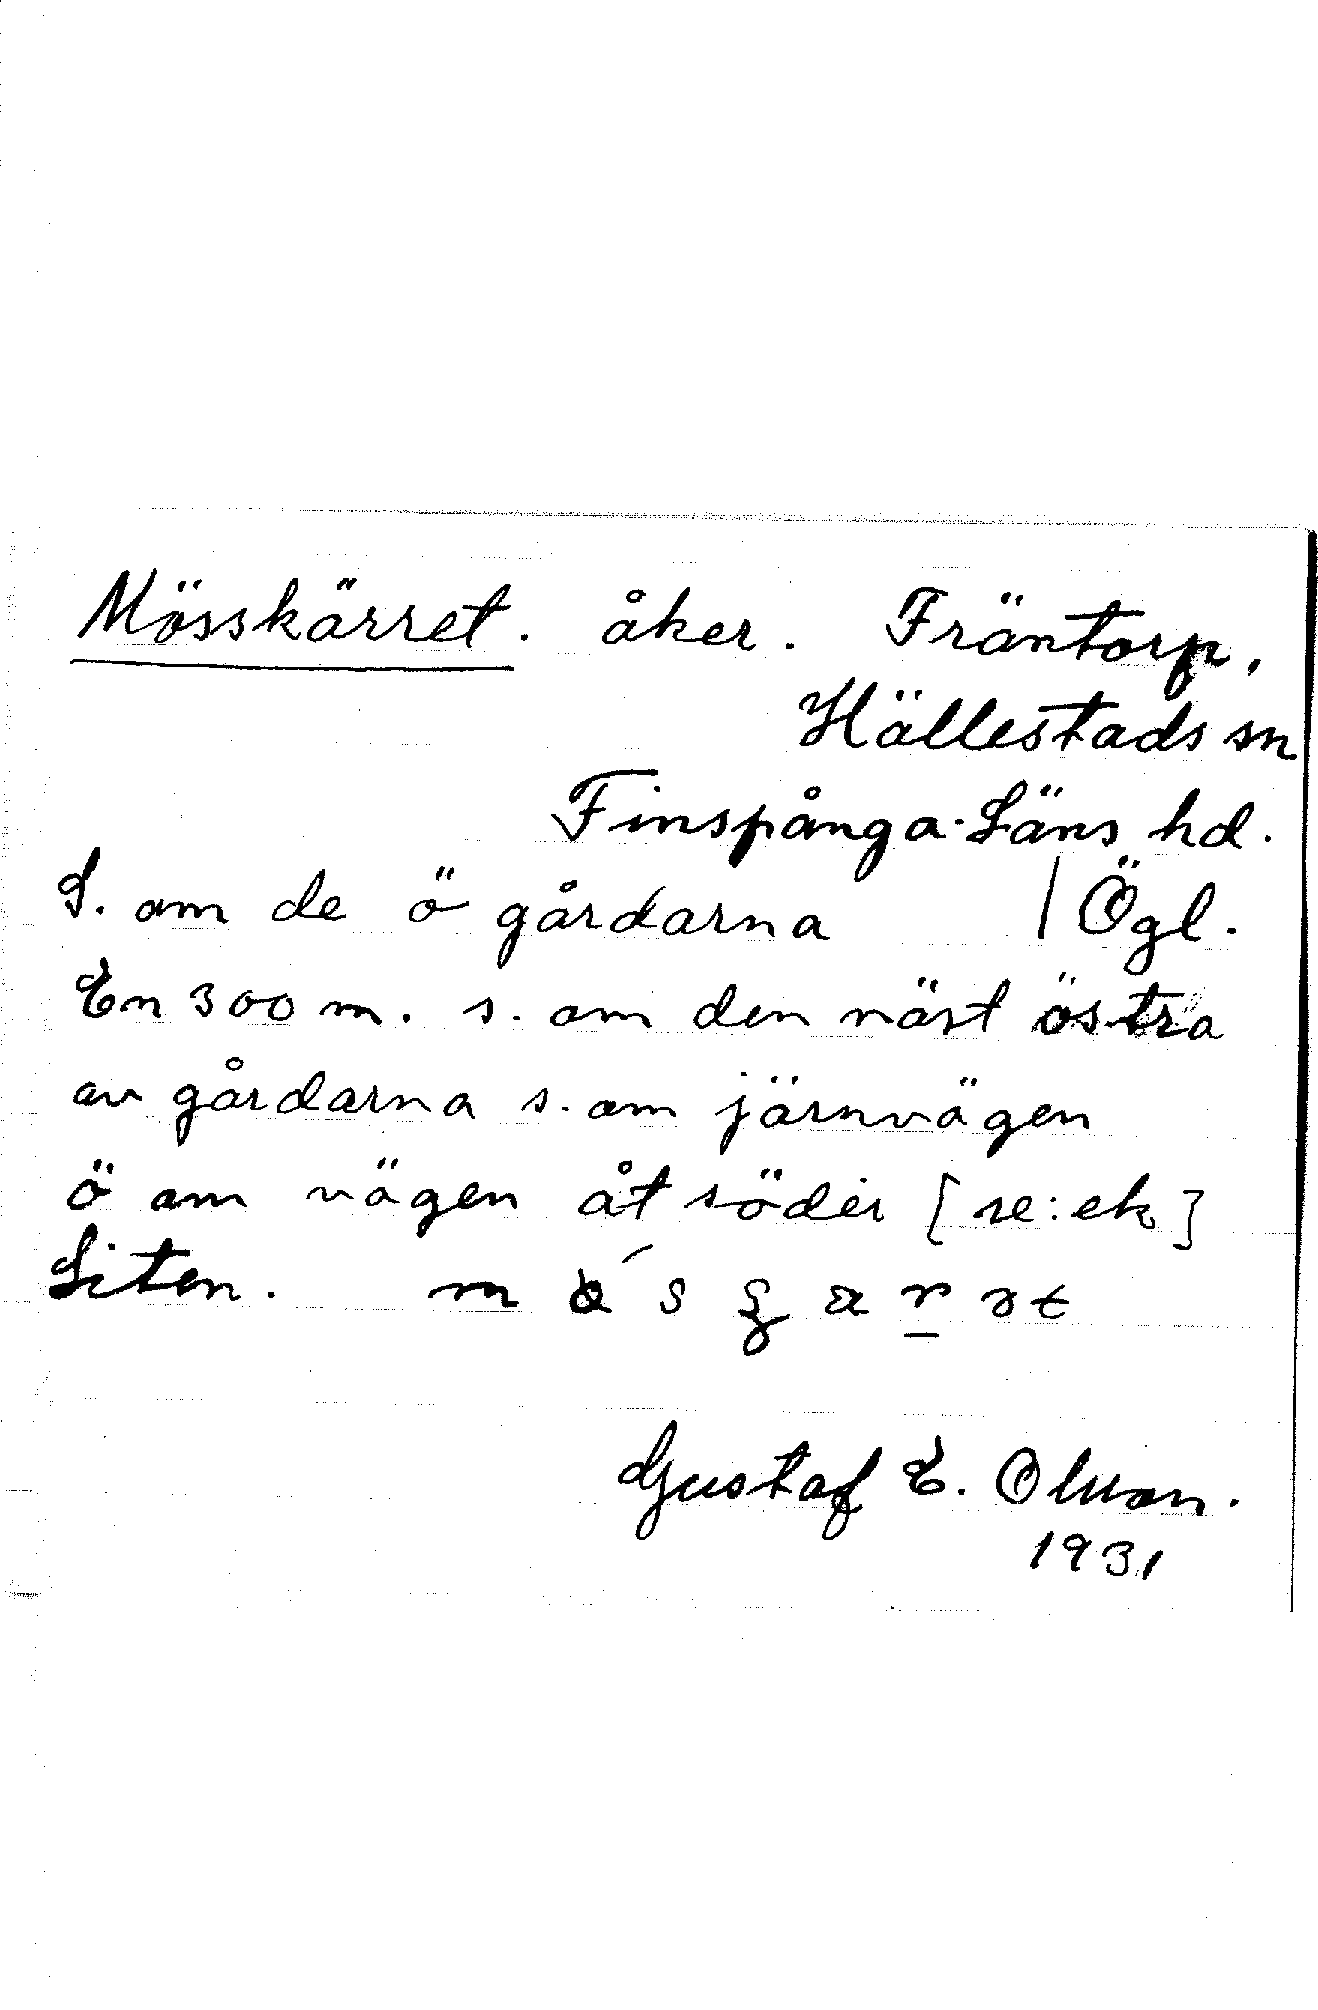 Mösskärret. åker. Fräntorp,
Hällestads sn
Finspånga-Läns hd.
S. om de ö gårdarna | Ögl.
En 300 m. s. om den näst östra
av gårdarna s. om järnvägen
ö om vägen åt söder [se: ek]
Liten.
Gustaf E. Olsson.
1931